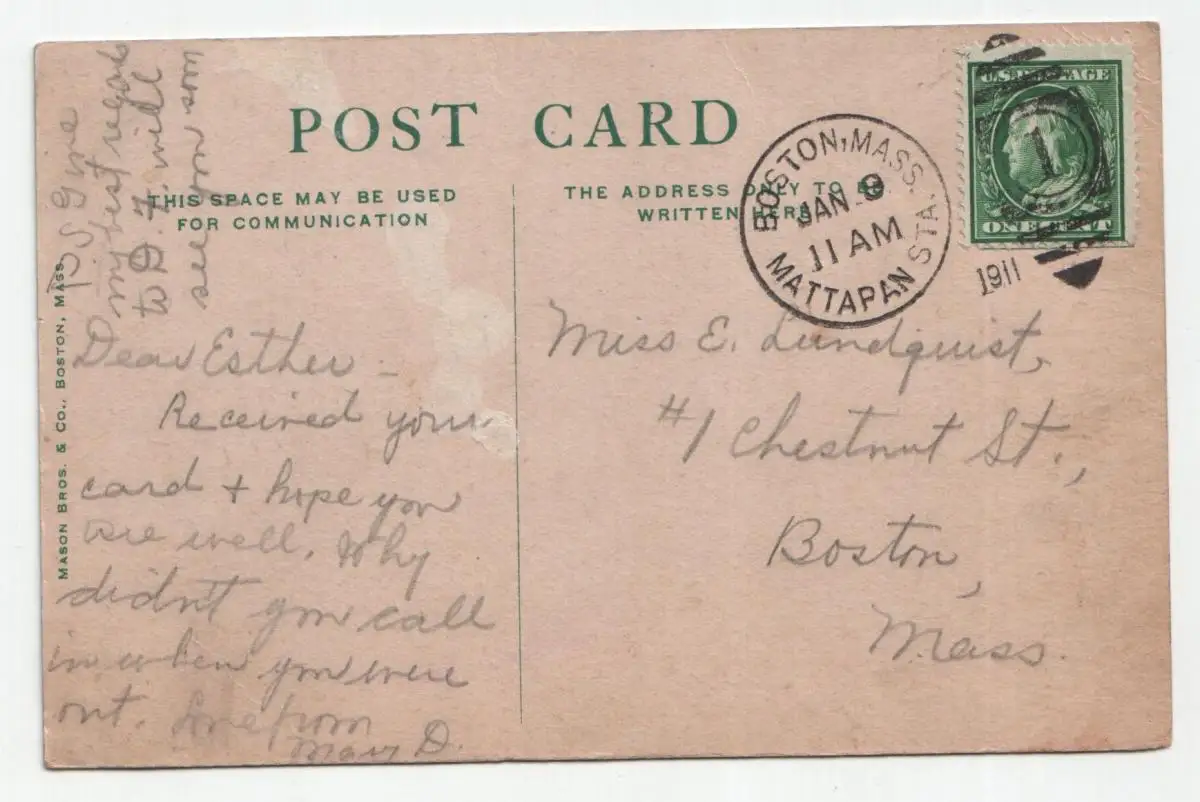 POST CARD
THIS SPACE MAY BE USED
FOR COMMUNICATION
THE ADDRESS ONLY TO BE
WRITTEN HERE
BOSTON, MASS.
MATTAPAN STA.
JAN 9
11 AM
1911
U.S. POSTAGE
1
ONE CENT
P.S. Give
my best regards
to D. I will
see you soon
Dear Esther –
Received your
card + hope you
are well. Why
didn't you call
in when you were
out. Love from
Mary D.
Miss E. Lundquist,
#1 Chestnut St.,
Boston,
Mass.
MASON BROS. & CO., BOSTON, MASS.